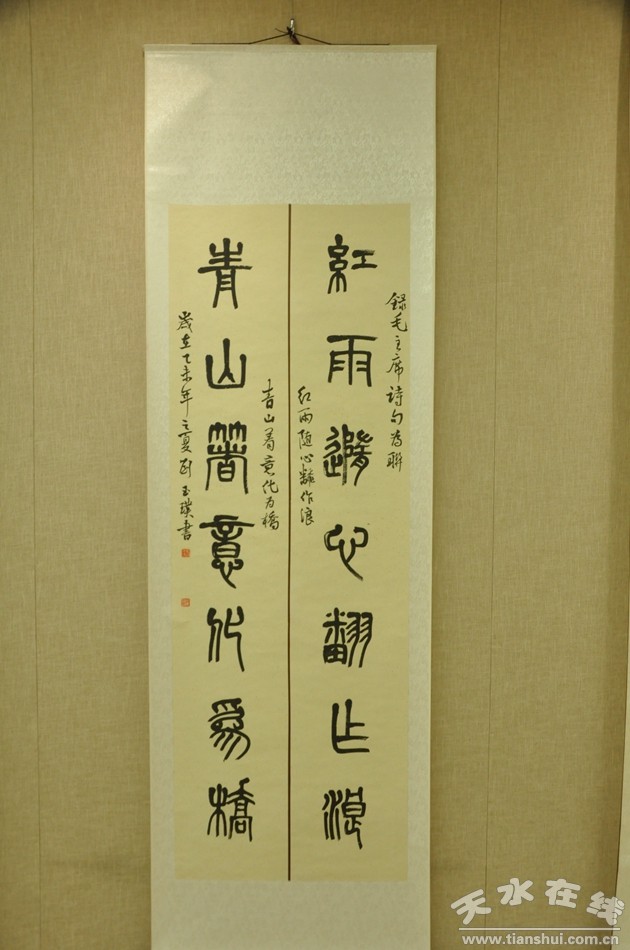 録毛主席詩句為聯
紅雨隨心翻作浪
红雨随心翻作浪
青山著意化為橋
青山着意化为橋
歲在乙未年之夏
玉璞書
天水在线
www.tianshui.com.cn